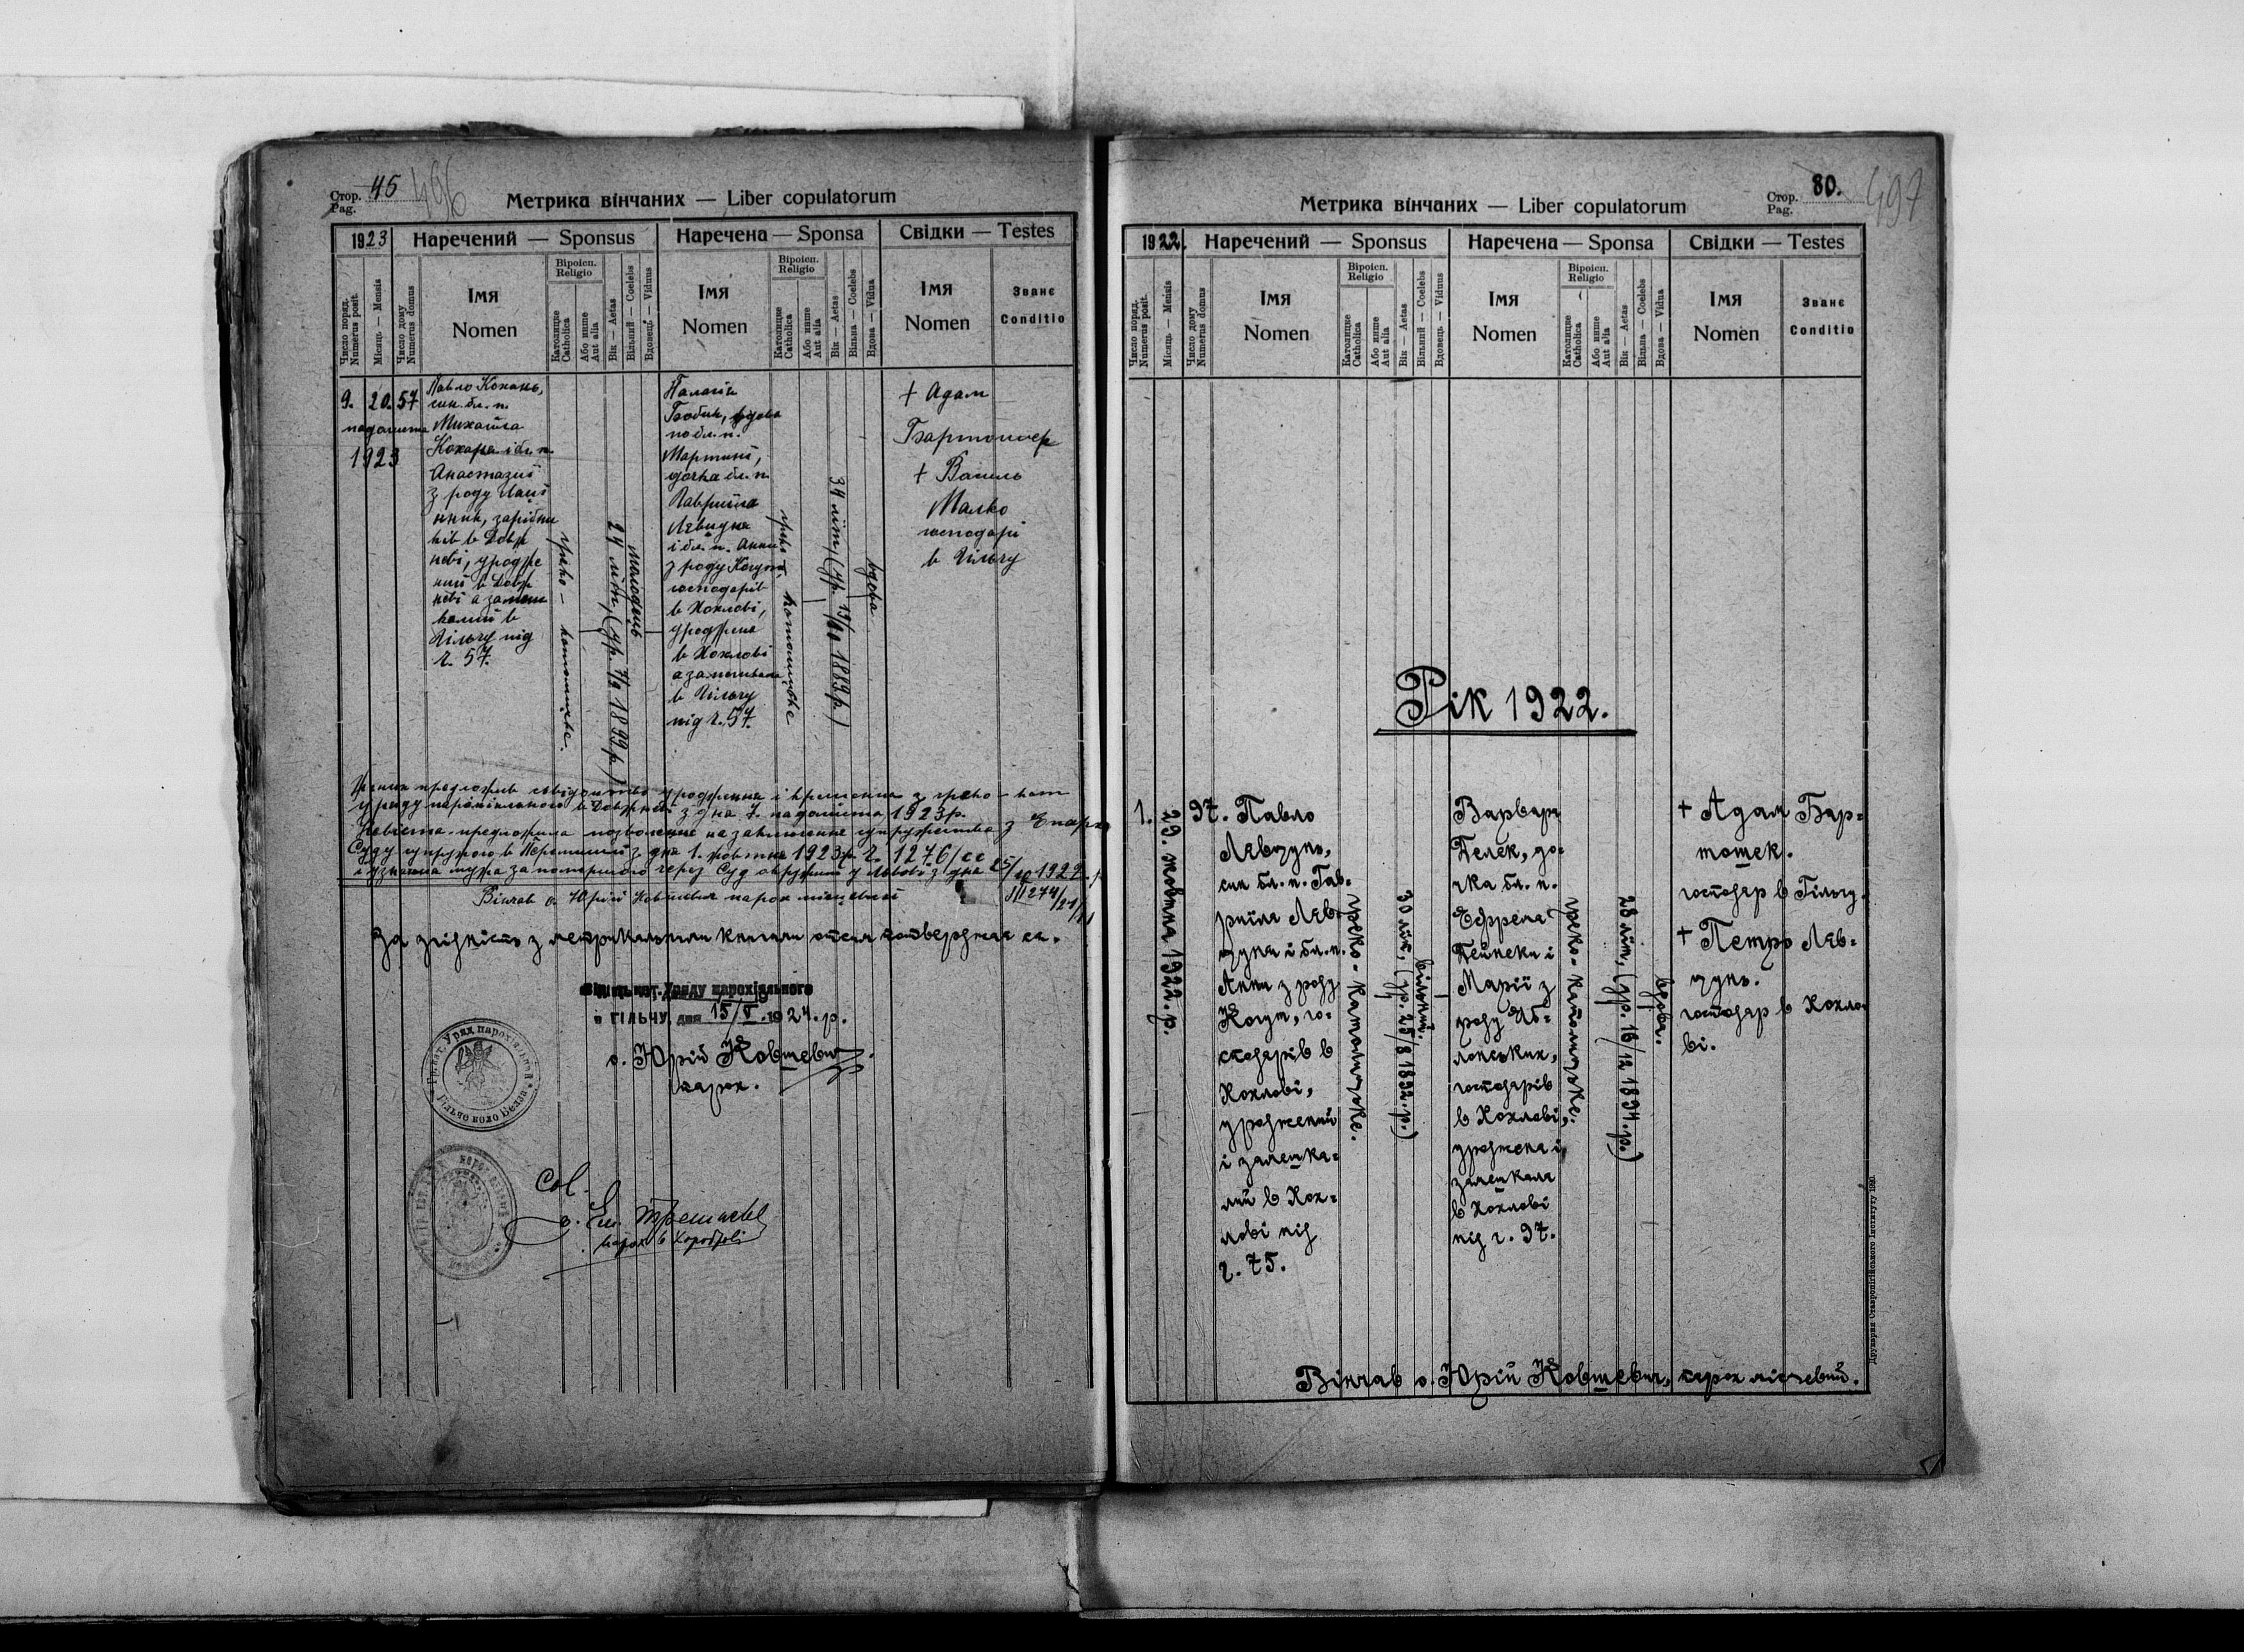 Стор. 45 496
Pag.
Метрика вінчаних — Liber copulatorum
1923 Наречений — Sponsus Наречена — Sponsa Свідки — Testes
Число поряд. Numerus posit.
Місяць — Mensis
Число дому Numerus domus
Імя
Nomen
Віроісп.
Religio
Католицке Catholica
Або инше Aut alia
Вік — Aetas
Вільний — Coelebs
Вдовець — Viduus
Імя
Nomen
Віроісп.
Religio
Католицке Catholica
Або инше Aut alia
Вік — Aetas
Вільна — Coelebs
Вдова — Vidua
Імя
Nomen
Званє
Conditio
9. 20. 57
падолиста
1923
Павло Кохань,
син бл. п.
Михайла
Кохана і бл. п.
Анастазиї
з роду
зарібни
ків в Довж
неві, уродже
ний в Довж
неві а замеш
калий в
Гільчу під
ч. 57.
греко - католицьке.
24 літ, (ур. 7/2 1899 р.)
молодець
Палагія
вдова
по бл. п.
Мартині,
дочка бл. п.
Гавриїла
Левцуна
і бл. п. Анни
з роду Когут,
господарів
в Хохлові,
уроджена
в Хохлові
а замешкала
в Гільчу
під ч. 57.
греко - католицьке
34 літ, (ур. 13/ 1889 р.)
вдова
+ Адам
Бартошек
+ Василь
Малко
господарі
в Гільчу
предложив свідоцтво уродження і крещення з греко - кат
уряду парохіяльного в Довжневі з дня 7. падолиста 1923 р.
предложила позволенє на заключенє супружества з Епарх
Суду супружого в Перемишлі з дня 1. жовтня 1923 р. ч. 1276/
і узнання мужа за померлого через Суд окружний у Львові з дня 25/ 1922 р.
274/21/11
Вінчав о. Юрій Ковшевич парох місцевий
За згідність з метрикальними книгами отсим потверджає ся.
Уряду парохіяльного
в ГІЛЬЧУ, дня 15/V. 1924. р.
о. Юрій Ковшевич.
парох.
Гр. кат. Уряд парохіяльний
Гільче коло Белза
Col.
парох в
Стор. 80. 497
Pag.
Метрика вінчаних — Liber copulatorum
1922. Наречений — Sponsus Наречена — Sponsa Свідки — Testes
Число поряд. Numerus posit.
Місяць — Mensis
Число дому Numerus domus
Імя
Nomen
Віроісп.
Religio
Католицке Catholica
Або инше Aut alia
Вік — Aetas
Вільний — Coelebs
Вдовець — Viduus
Імя
Nomen
Віроісп.
Religio
Католицке Catholica
Або инше Aut alia
Вік — Aetas
Вільна — Coelebs
Вдова — Vidua
Імя
Nomen
Званє
Conditio
Рік 1922.
1.
29. жовтня 1922. р.
97. Павло
Левцунь,
син бл. п. Гав=
риїла Лев=
цуна і бл. п.
Анни з роду
Когут, го=
сподарів в
Хохлові,
уроджений
і замешка=
лий в Хох=
лові під
ч. 75.
греко - католицьке.
30 літ, (ур. 25/8 1892. р.)
вільний.
Варвара
Пелех, до=
чка бл. п.
Ефрема
і
Марії з
роду Яб=
лонських,
господарів
в Хохлові,
уроджена і
замешкала
в Хохлові
під ч. 97.
греко - католицьке.
28 літ, (ур. 16/12 1894. р.)
вдова.
+ Адам Бар=
тошек.
господар в Гільчу.
+ Петро Лев=
цунь.
господар в Хохло=
ві.
Вінчав о. Юрій Ковшевич, парох місцевий.
Друкарня Ставропігійського Інституту 1920.